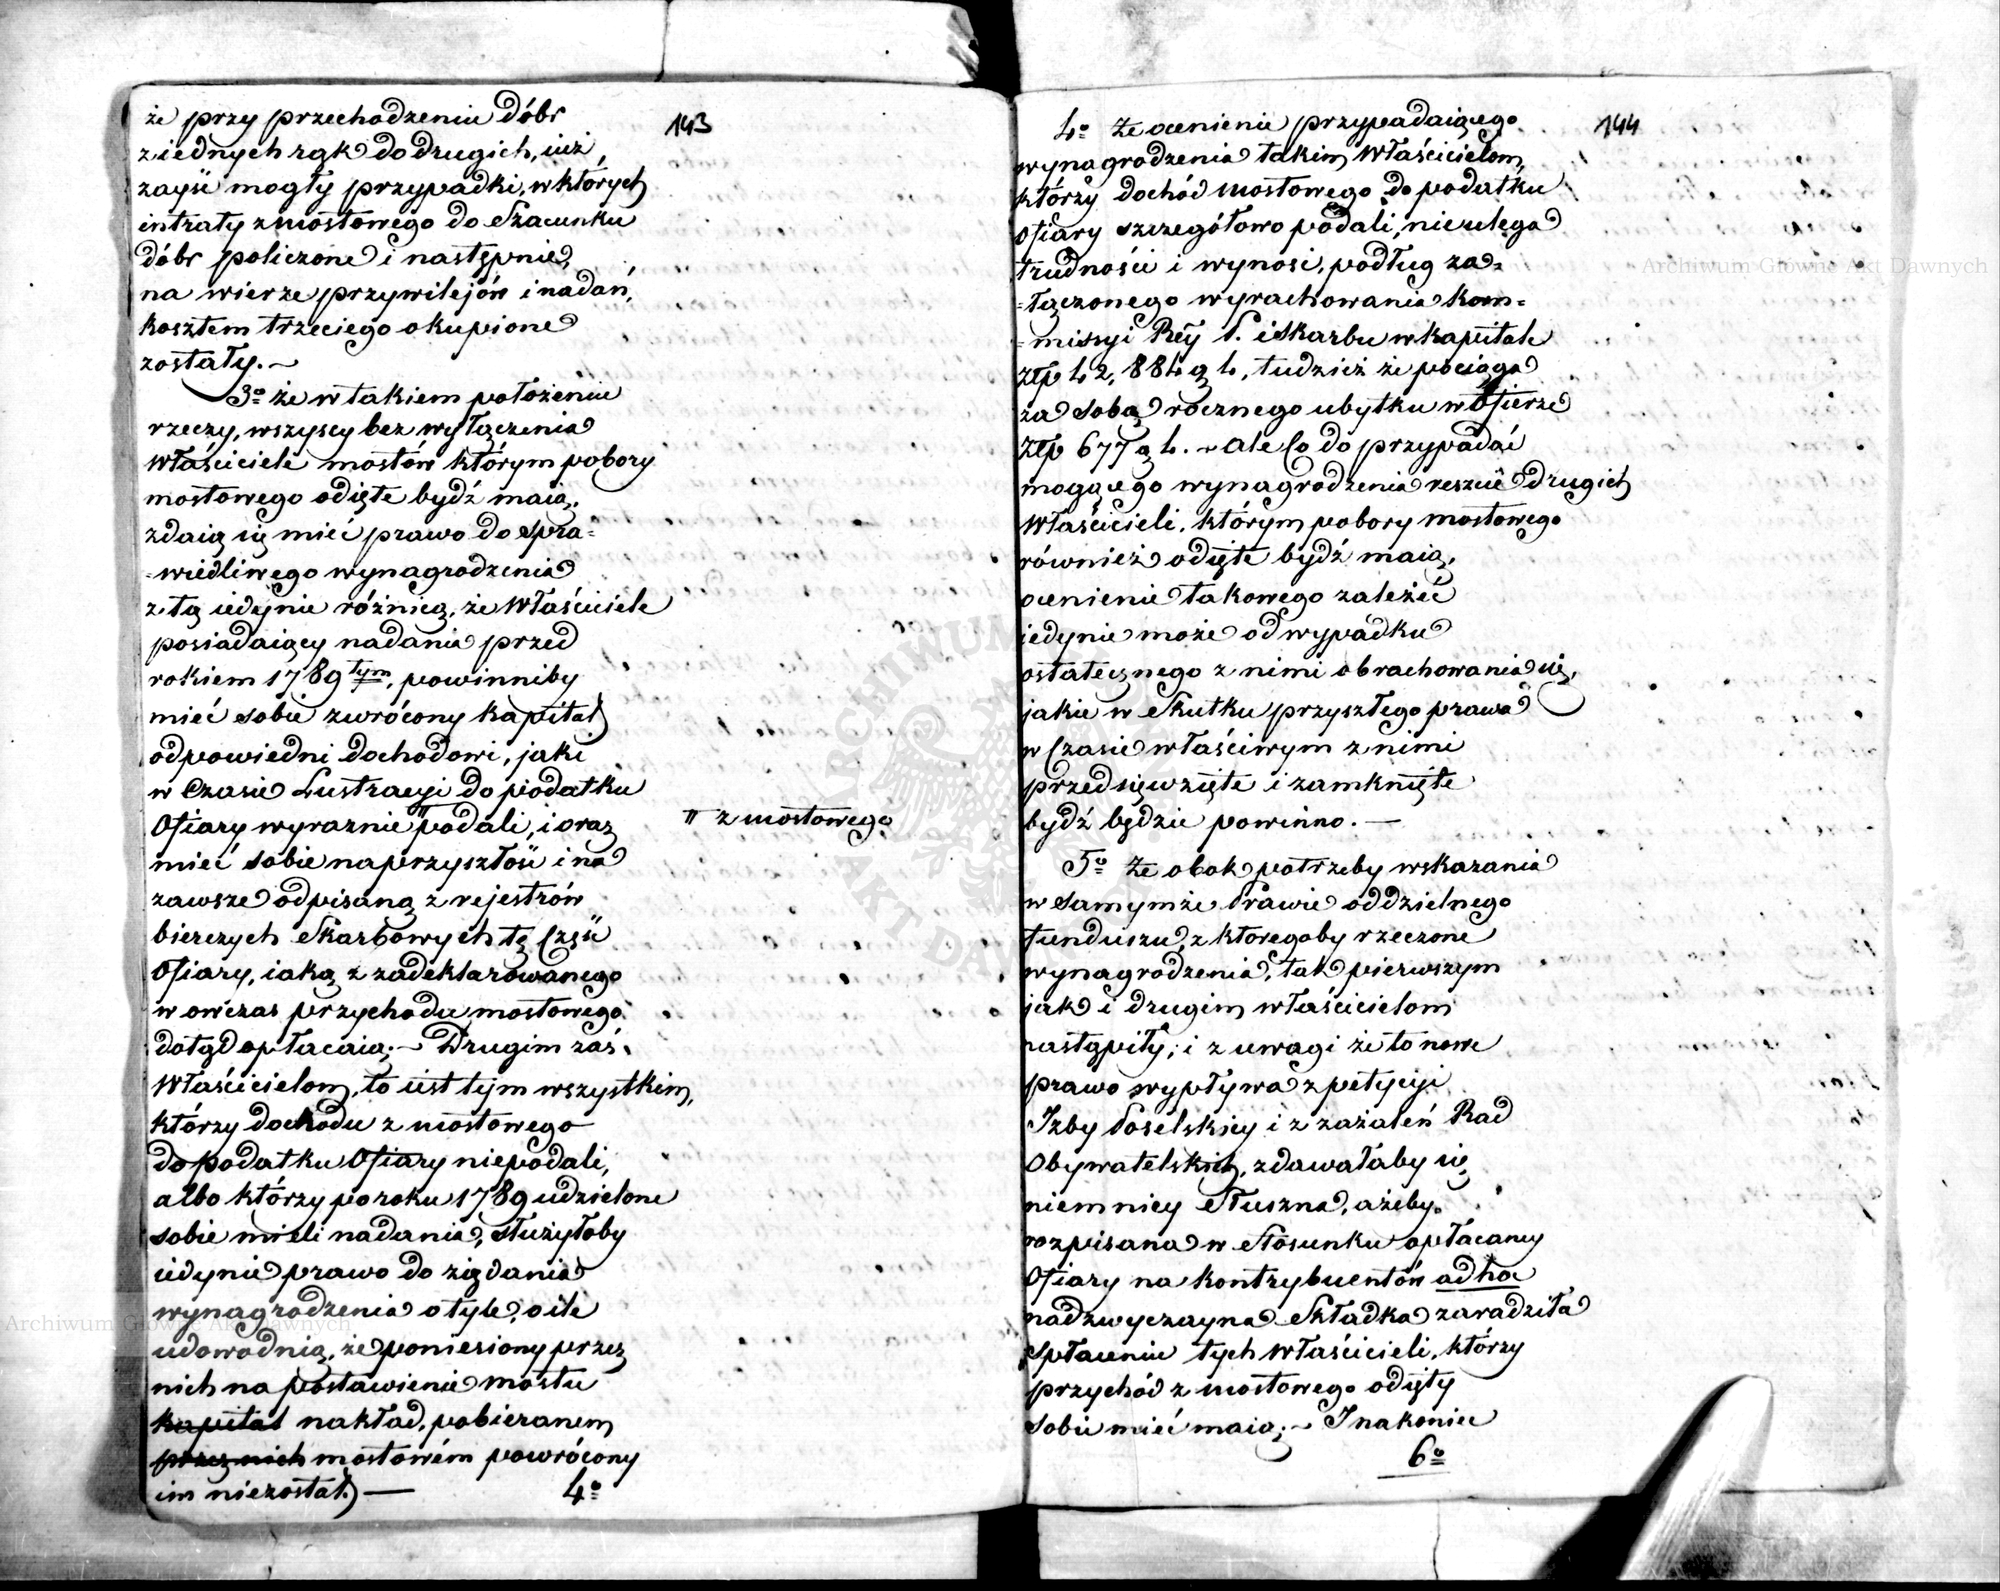 143
że przy przechodzeniu dóbr
z iednych rąk do drugich, iuż
zayść mogły przypadki, w których
intraty z mostowego do szacunku
dóbr policzone i następnie,
na wierze przywilejów i nadań,
kosztem trzeciego okupione
zostały. –
3o że w takiem położeniu
rzeczy, wszyscy bez wyłączenia
Właściciele mostów którym pobory
mostowego odięte bydź maią,
zdaią się mieć prawo do spra=
=wiedliwego wynagrodzenia
z tą iedynie różnicą, że Właściciele
posiadaiący nadania przed
rokiem 1789tym, powinniby
mieć sobie zwrócony kapitał
odpowiedni dochodowi, jaki
w Czasie Lustracyi do podatku
Ofiary wyraznie ╥ podali, i oraz
╥ z mostowego
mieć sobie naprzyszłość i na
zawsze odpisaną z rejestrów
bierczych Skarbowych tę Część
Ofiary, iaką z zadeklarowanego
w owczas przychodu mostowego
dotąd opłacaią; – Drugim zaś
Właścicielom, to iest tym wszystkim,
którzy dochodu z mostowego
do podatku Ofiary niepodali,
albo którzy po roku 1789 udzielone
sobie mieli nadania, służyłoby
iedynie prawo do żądania
wynagrodzenia o tyle, o ile
udowodnią, że poniesiony przez
nich na postawienie mostu
kapitał nakład, pobieranem
przez nich mostowém powrócony
im niezostał) —
4o
144
4o Że ocenienie przypadaiącego
wynagrodzenia takim Właścicielom,
którzy dochód mostowego do podatku
Ofiary szczegółowo podali, nieulega
trudności i wynosi, podług za=
=łączonego wyrachowania Kom=
=missyi Rey P. i Skarbu w kapitale
złp 42,884 g 4, tudzież że pociąga
za sobą rocznego ubytku w Ofierze
Złp 677 g 4. – ale Co do przypadać
mogącego wynagrodzenia reszcie drugich
Właścicieli, którym pobory mostowego
również odięte bydź maią,
ocenienie takowego zależeć
iedynie może od wypadku
ostatecznego z nimi obrachowania się,
jakie w Skutku przyszłego prawa
w Czasie właściwym z nimi
przedsięwzięte i zamknięte
bydź będzie powinno. —
5o Że obok potrzeby wskazania
w samymże Prawie oddzielnego
funduszu, z któregoby rzeczone
wynagrodzenia, tak pierwszym
jak i drugim właścicielom
nastąpiły; i z uwagi że to nowe
prawo wypływa z petycyi
Izby Poselskiey i z zażaleń Rad
Obywatelskich, zdawałaby się
niemniey Słuszna, ażeby
rozpisana w Stosunku opłacaney
Ofiary na kontrybuentów ad hoc
nadzwyczayna Składka zaradziła
spłaceniu tych Właścicieli, którzy
przychód z mostowego odięty
sobie mieć maią; – Inakoniec
6o